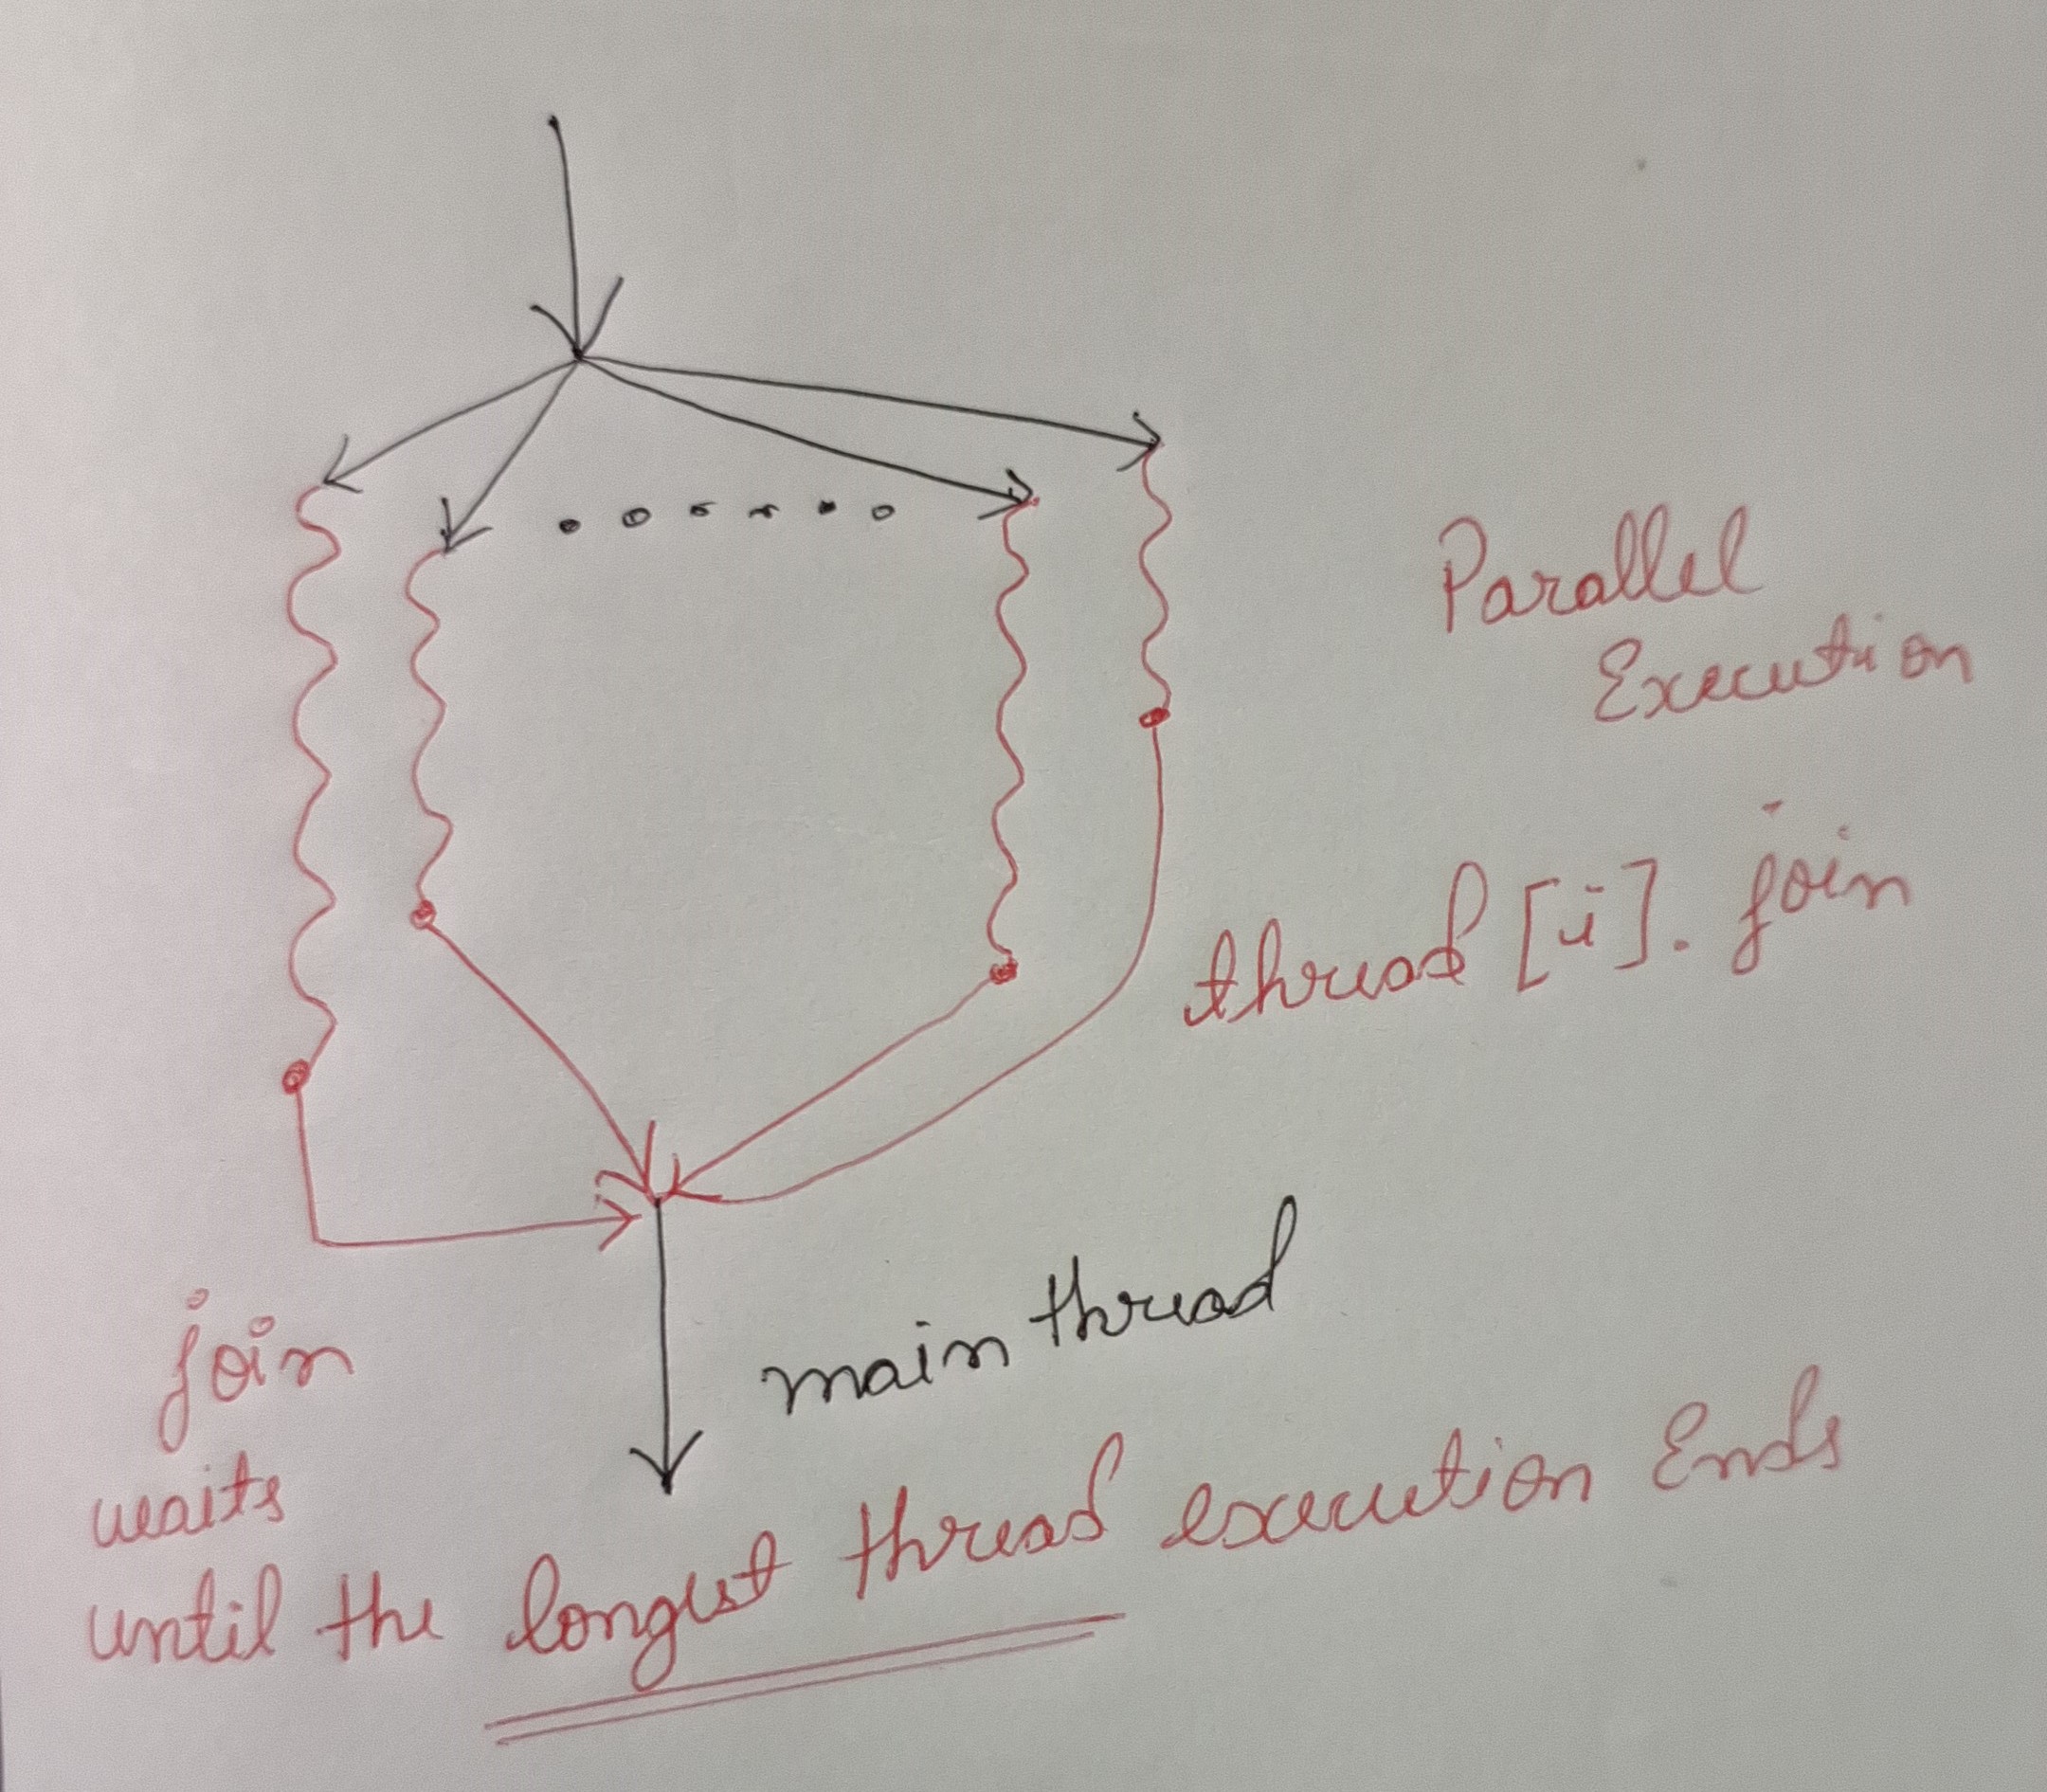 Parallel
Execution
thread [i]. join
main thread
join
waits
until the longest thread execution Ends